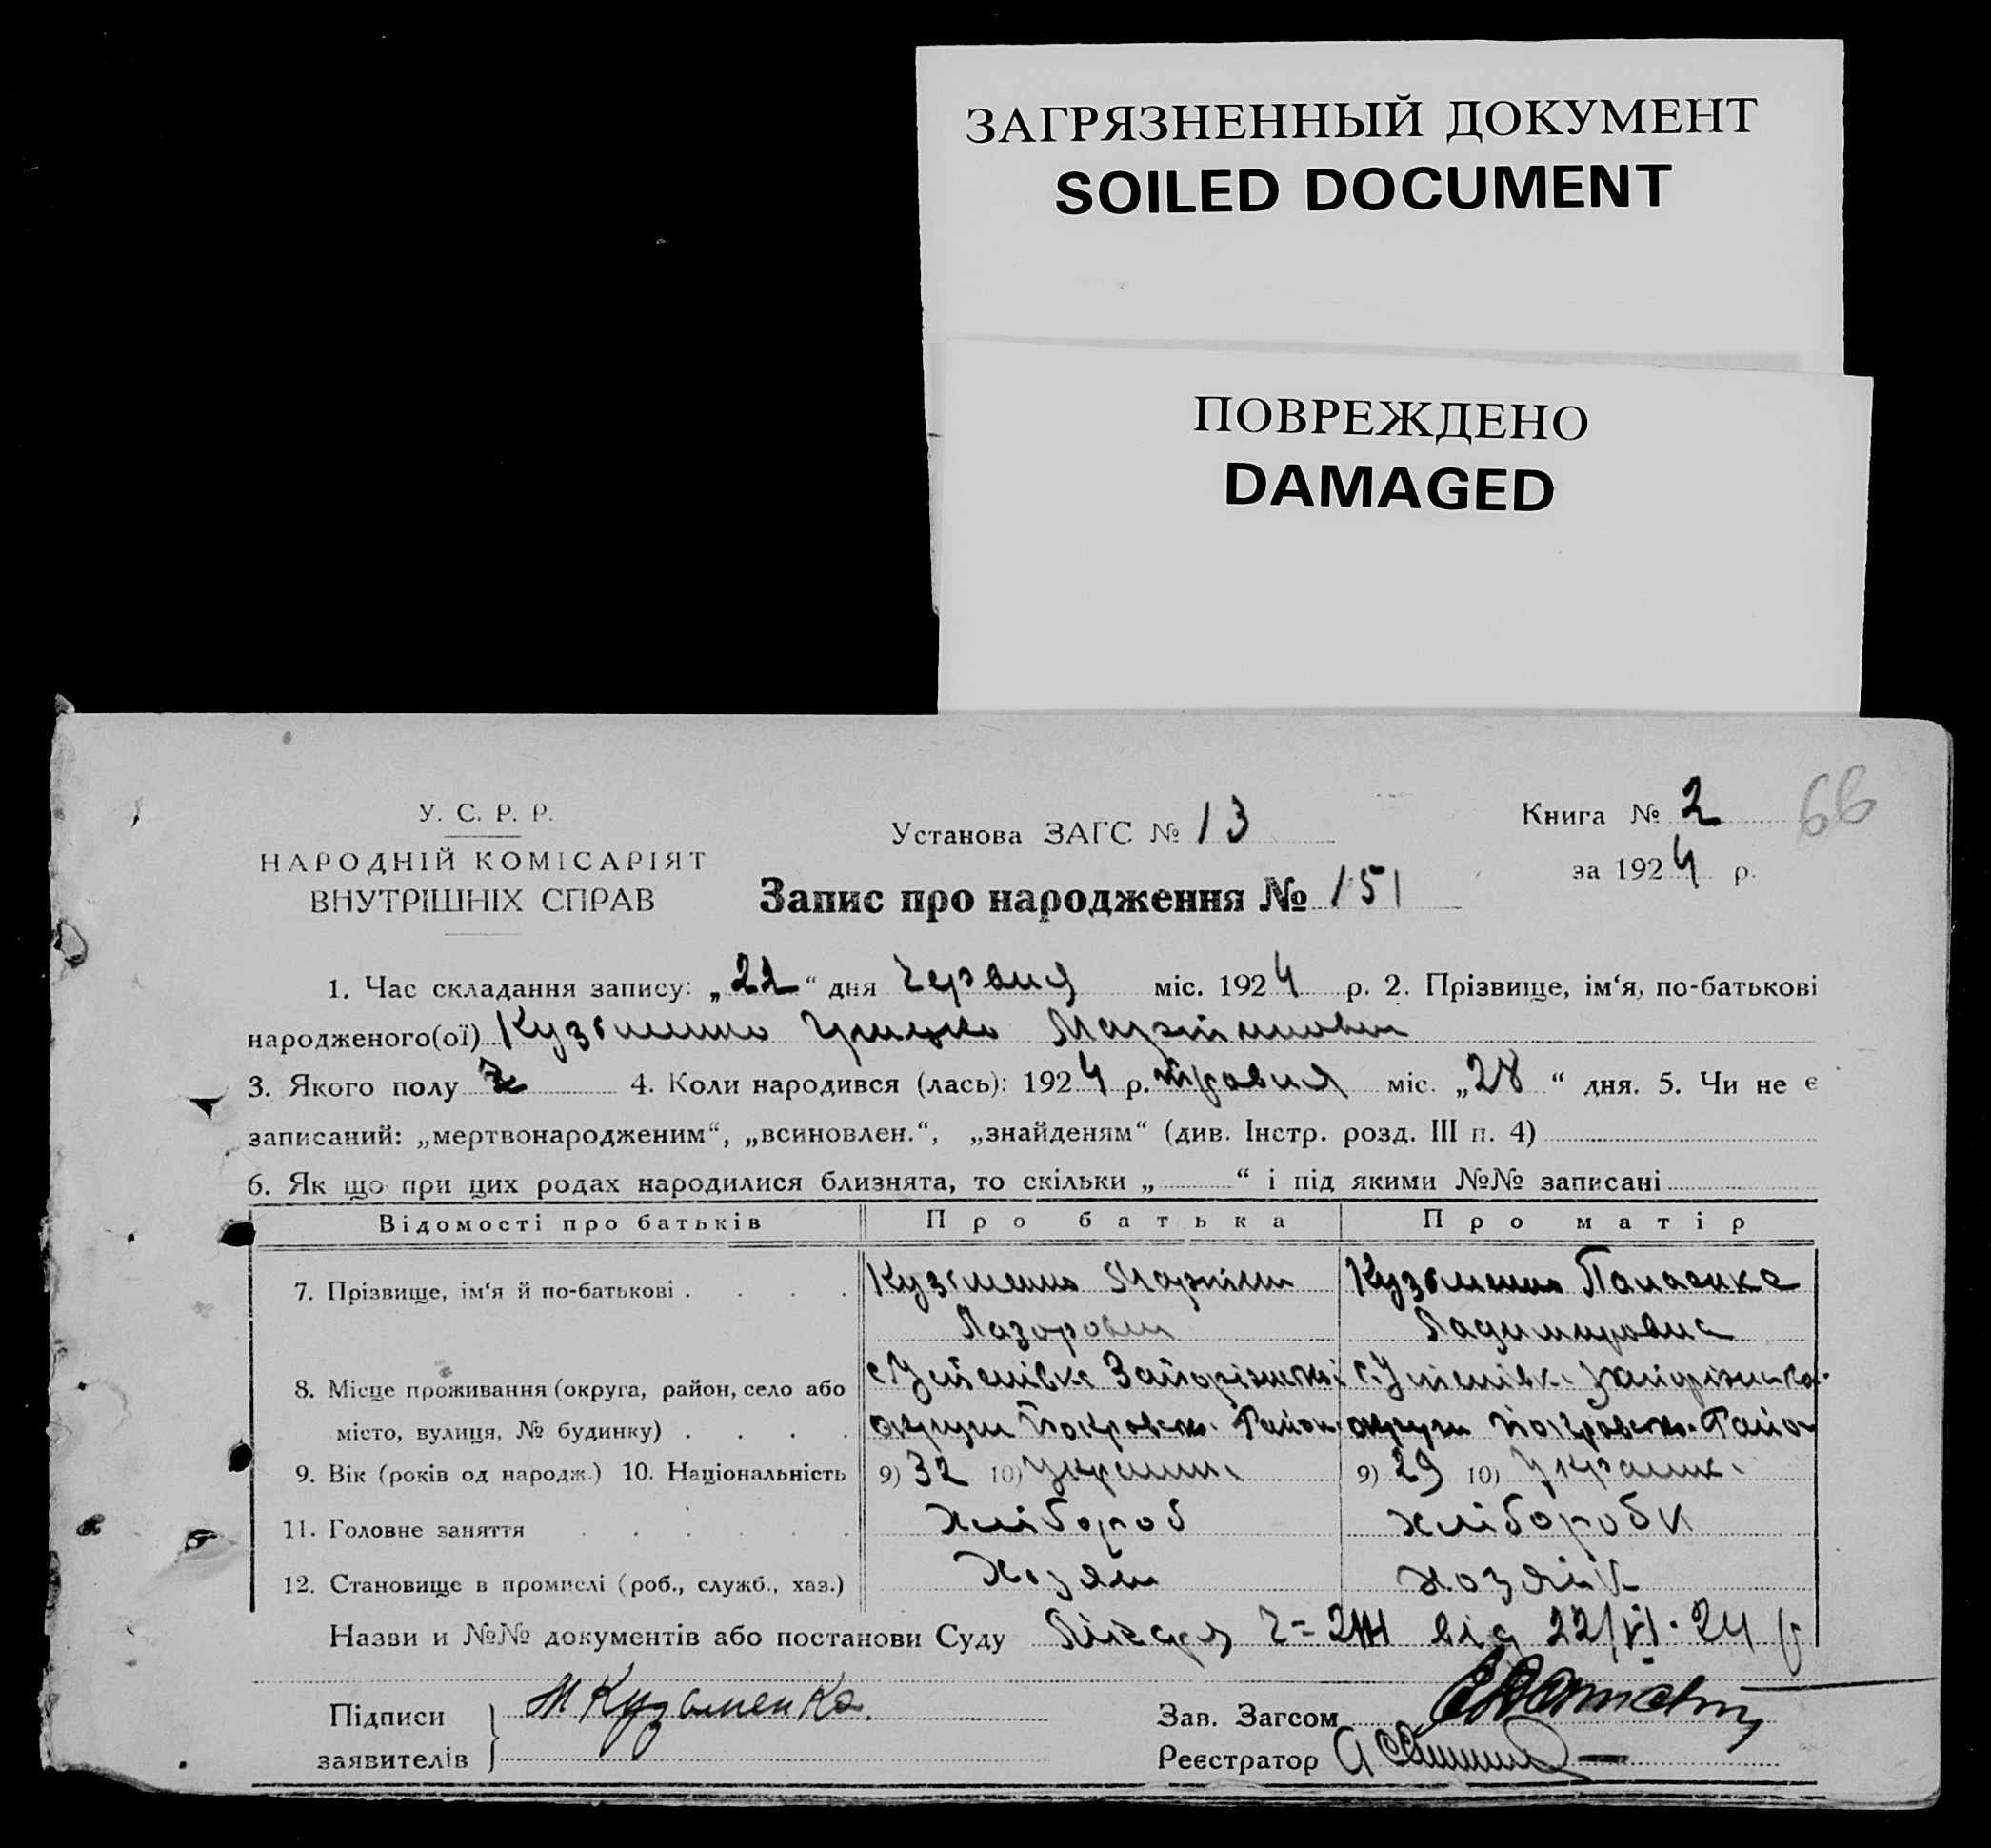 ЗАГРЯЗНЕННЫЙ ДОКУМЕНТ
SOILED DOCUMENT
ПОВРЕЖДЕНО
DAMAGED
У. С. Р. Р.
НАРОДНІЙ КОМІСАРІЯТ
ВНУТРІШНІХ СПРАВ
Установа ЗАГС № 13
Запис про народження № 151
Книга № 2
66
за 1924 р.
1. Час складання запису: „22“ дня Червня міс. 1924 р. 2. Прізвище, ім‘я, по-батькові
народженого(ої) Кузьменко Грицько Мартинович
3. Якого полу 4. Коли народився (лась): 1924 р. травня міс. „28“ дня. 5. Чи не є
записаний: „мертвонародженим“, „всиновлен.“, „знайденям“ (див. Інстр. розд. III п. 4)
6. Як що при цих родах народилися близнята, то скільки „ “ і під якими №№ записані
Відомості про батьків Про батька Про матір
7. Прізвище, ім‘я й по-батькові . . . . Кузьменко Мартин Кузьменко Палажка
Лазорович
8. Місце проживання (округа, район, село або с. Успенівка Запорізької с. Успенівк. Запорізька
місто, вулиця, № будинку) . . . . округи Покровськ. Район округи Покровськ. Район
9. Вік (років од народж.) 10. Національність 9) 32 10) Україн. 9) 29 10) Україн.
11. Головне заняття . . . . . . хлібороб хліборобк
12. Становище в промислі (роб., служб., хаз.) Хозяїн хозяйк
Назви и №№ документів або постанови Суду від 22/VI-24 р
Підписи М Кузьменко. Зав. Загсом
заявителів Реєстратор